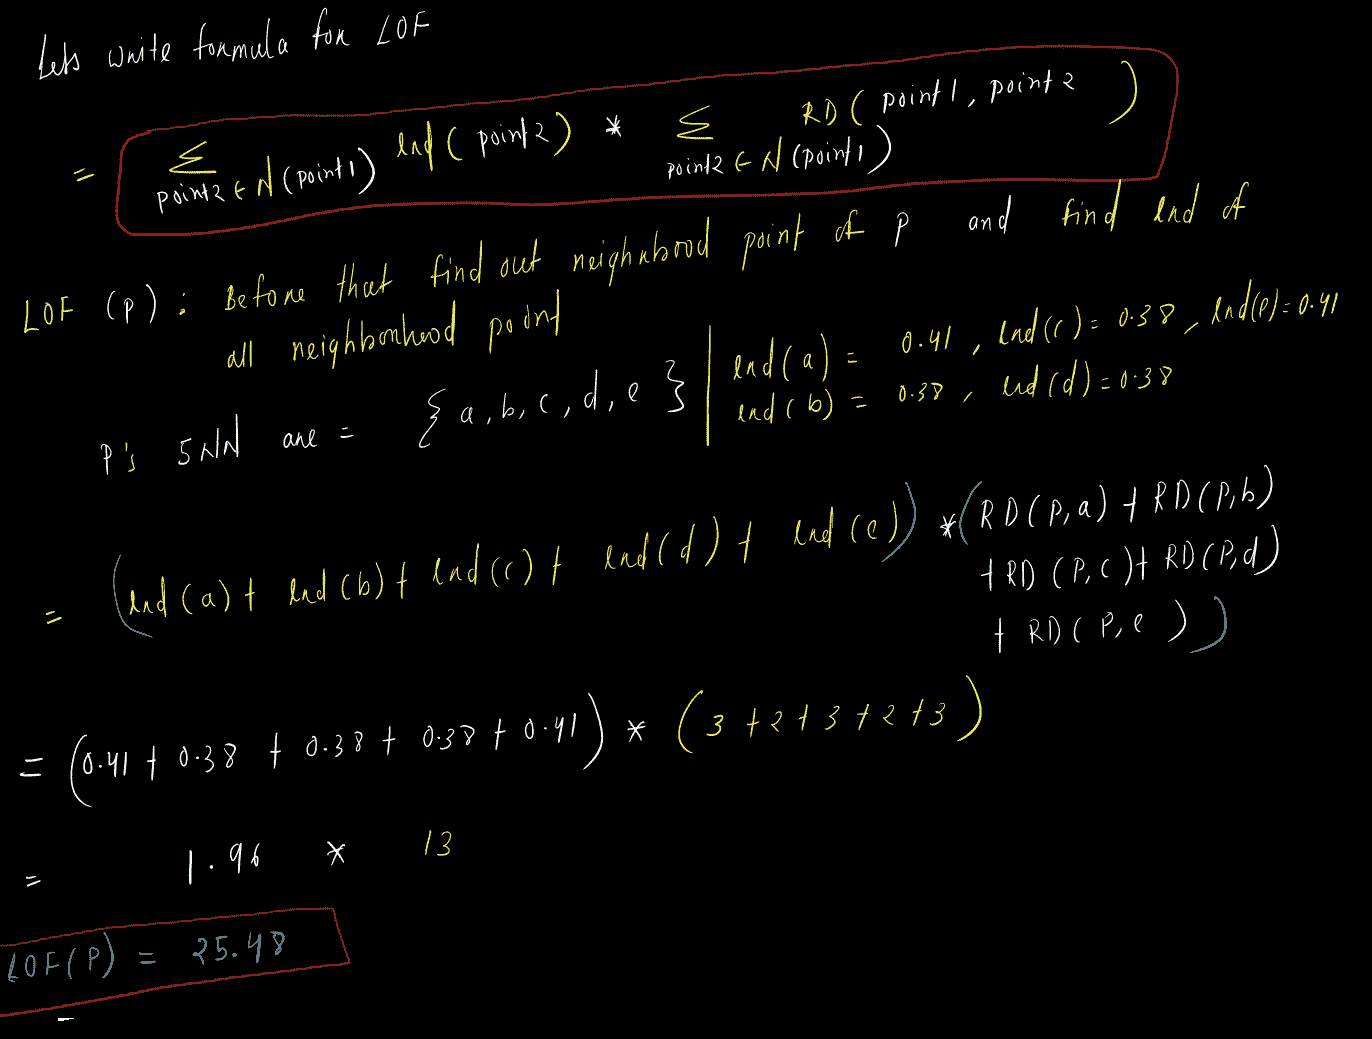 Lets write formula for LOF
= Σ point2 ∈ N(point1) lrd(point2) * Σ point2 ∈ N(point1) RD(point1, point2)
LOF (P) : Before that find out neighubrood point of P and find lrd of
all neighborhood point
P's 5NN are = {a, b, c, d, e} | lrd(a) = 0.41, lrd(c) = 0.38, lrd(e) = 0.41
lrd(b) = 0.38, lrd(d) = 0.38
= (lrd(a) + lrd(b) + lrd(c) + lrd(d) + lrd(e)) * (RD(P,a) + RD(P,b)
+ RD(P,c) + RD(P,d)
+ RD(P,e))
= (0.41 + 0.38 + 0.38 + 0.38 + 0.41) * (3+2+3+2+3)
= 1.96 * 13
LOF(P) = 25.48